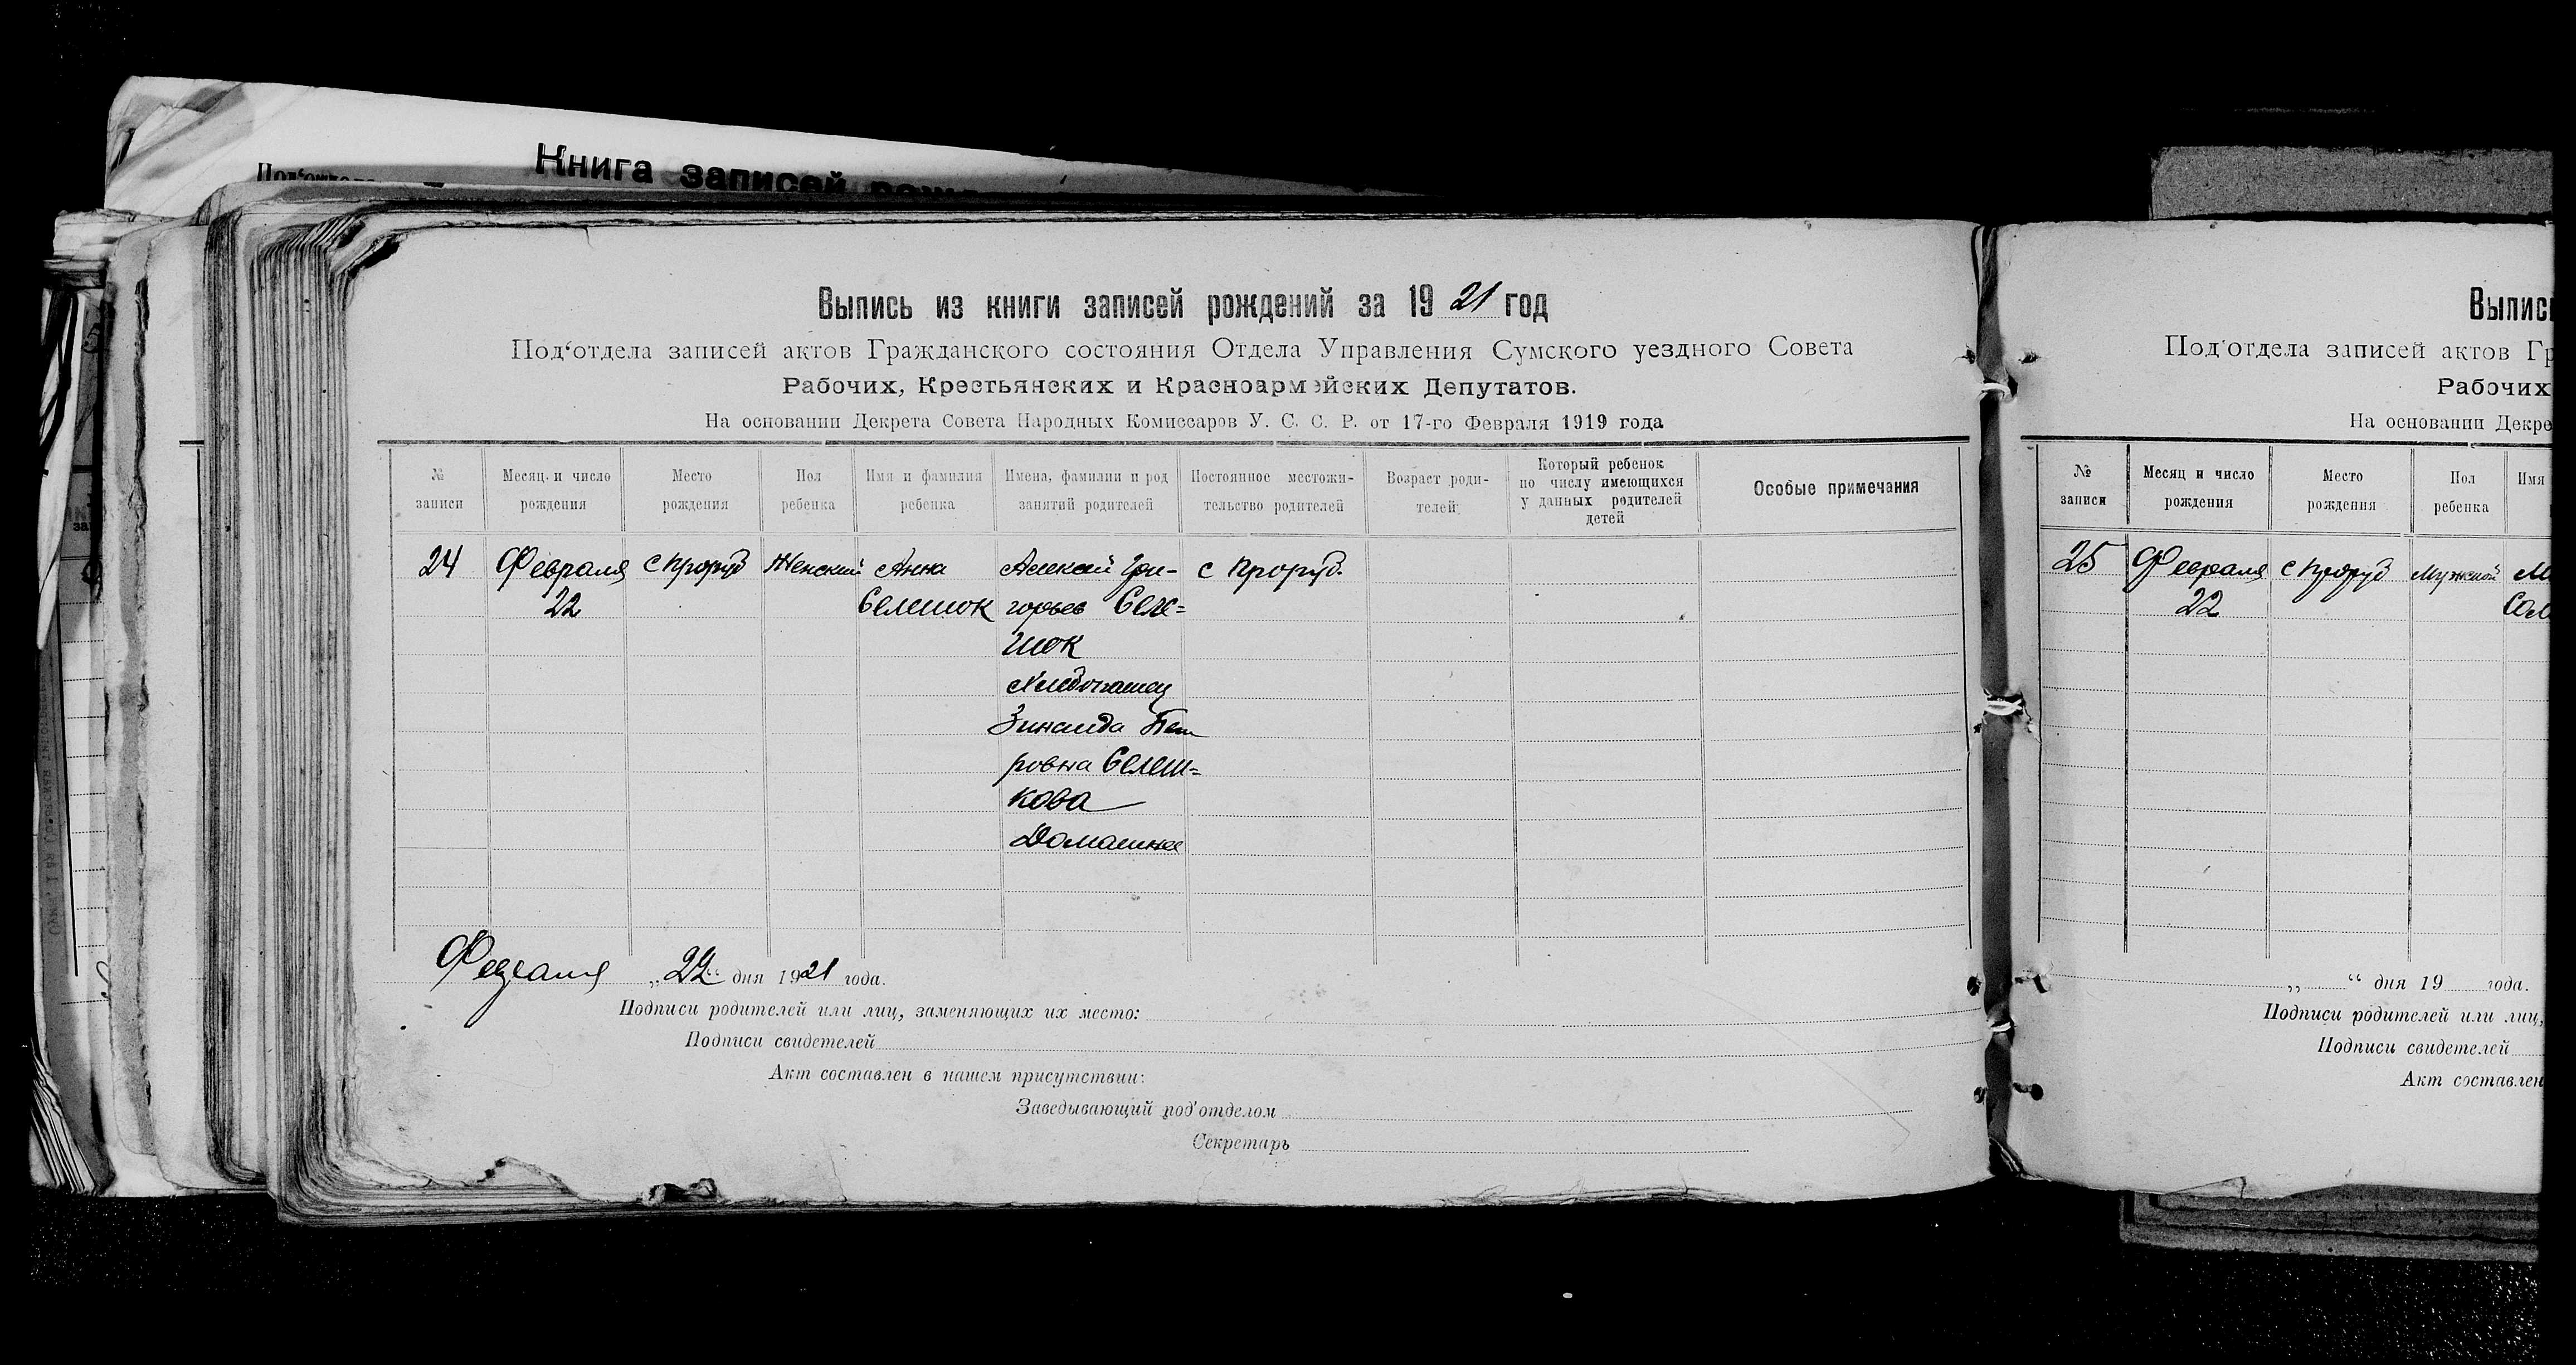 Книга записей
Выпись из книги записей рождений за 1921 год
Под‘отдела записей актов Гражданского состояния Отдела Управления Сумского уездного Совета
Рабочих, Крестьянских и Красноармейских Депутатов.
На основании Декрета Совета Народных Комиссаров У. С. С. Р. от 17-го Февраля 1919 года
№ записи
Месяц и число рождения
Место рождения
Пол ребенка
Имя и фамилия ребенка
Имена, фамилии и род занятий родителей
Постоянное местожительство родителей
Возраст родителей
Который ребенок по числу имеющихся у данных родителей детей
Особые примечания
24 Февраля с Проруб Женский Анна Алексей Гри- с Проруб.
22 Селешок горьев Селе=
шок
Хлебопашец
Зинаида Пет
ровна Селеш=
кова
Домашнее
Февраля „22“ дня 1921 года.
Подписи родителей или лиц, заменяющих их место:
Подписи свидетелей
Акт составлен в нашем присутствии:
Заведывающий под'отделом
Секретарь
Выпис
Под'отдела записей актов Гр
Рабочих
На основании Декре
№ записи
Месяц и число рождения
Место рождения
Пол ребенка
Имя
25 Февраля с Проруб Мужской
22
„ “ дня 19 года.
Подписи родителей или лиц,
Подписи свидетелей
Акт составлен